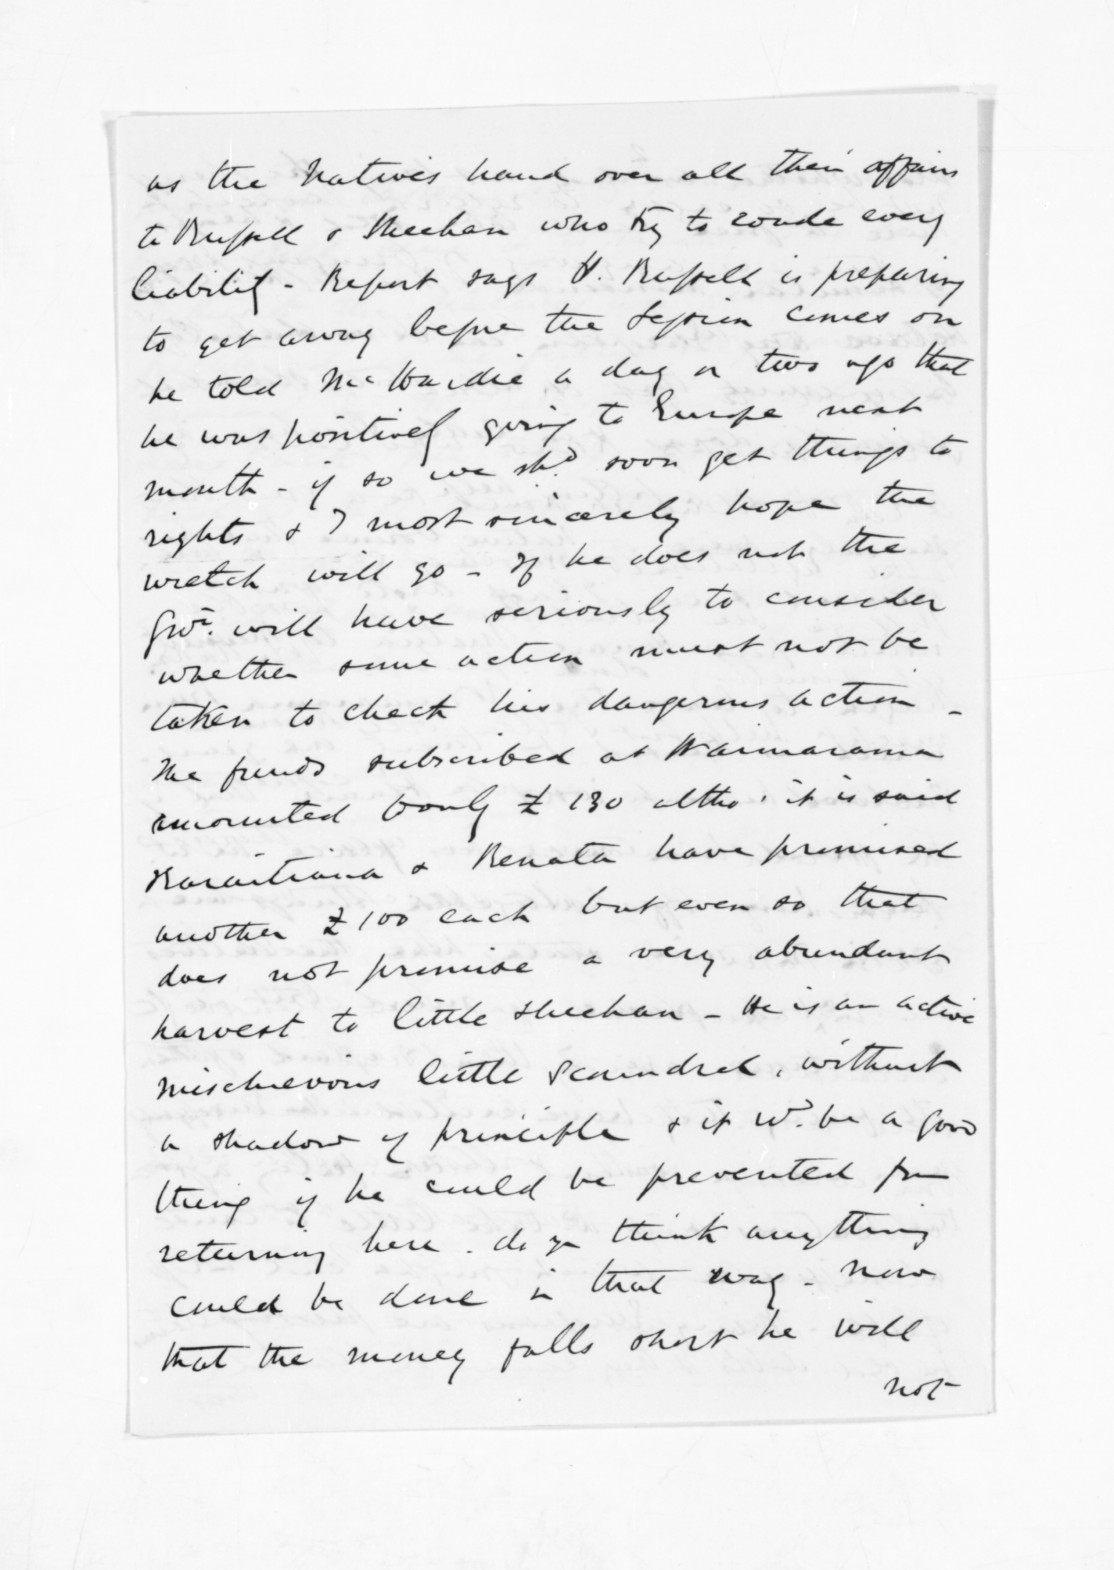 as the Natives hand over all their affairs
to Russell & Sheehan who try to evade every
liability - Report says H. Russell is preparing
to get away before the Session comes on
he told McHardie a day or two ago that
he was positively going to Europe next
month - if so we shd soon get things to
rights & I most sincerely hope the
wretch will go - If he does not the
Govt. will have seriously to consider
whether some action must not be
taken to check his dangerous action -
The funds subscribed at Waimarama
amounted to only £130 altho' it is said
Karaitiana & Renata have promised
another £100 each but even so that
does not promise a very abundant
harvest to little Sheehan - He is an active
mischievous little scoundrel, without
a shadow of principle & it wd. be a good
thing if he could be prevented from
returning here. do you think anything
could be done in that way - now
that the money falls short he will
not